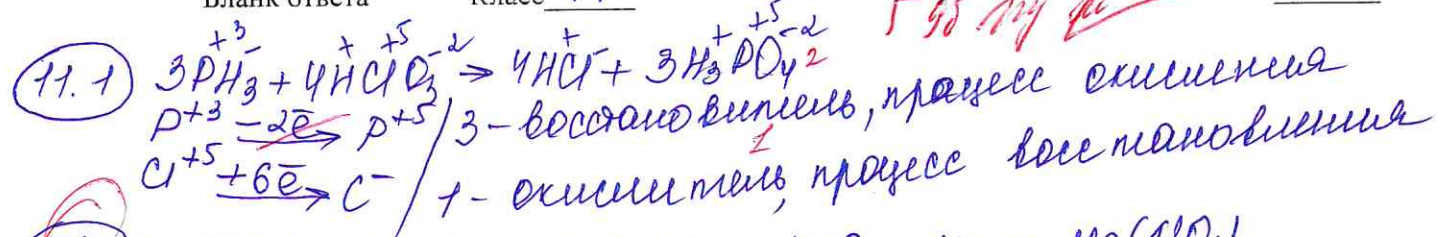 Бланк ответа Класс
11.1 3PH₃ + 4HClO₃ → 4HCl + 3H₃PO₄ 2
+3 - + +5 -2 + - + +5 -2
P⁺³ -2ē → P⁺⁵ / 3 - восстановитель, процесс окисления
1
Cl⁺⁵ +6ē → C⁻ / 1 - окислитель, процесс восстановления